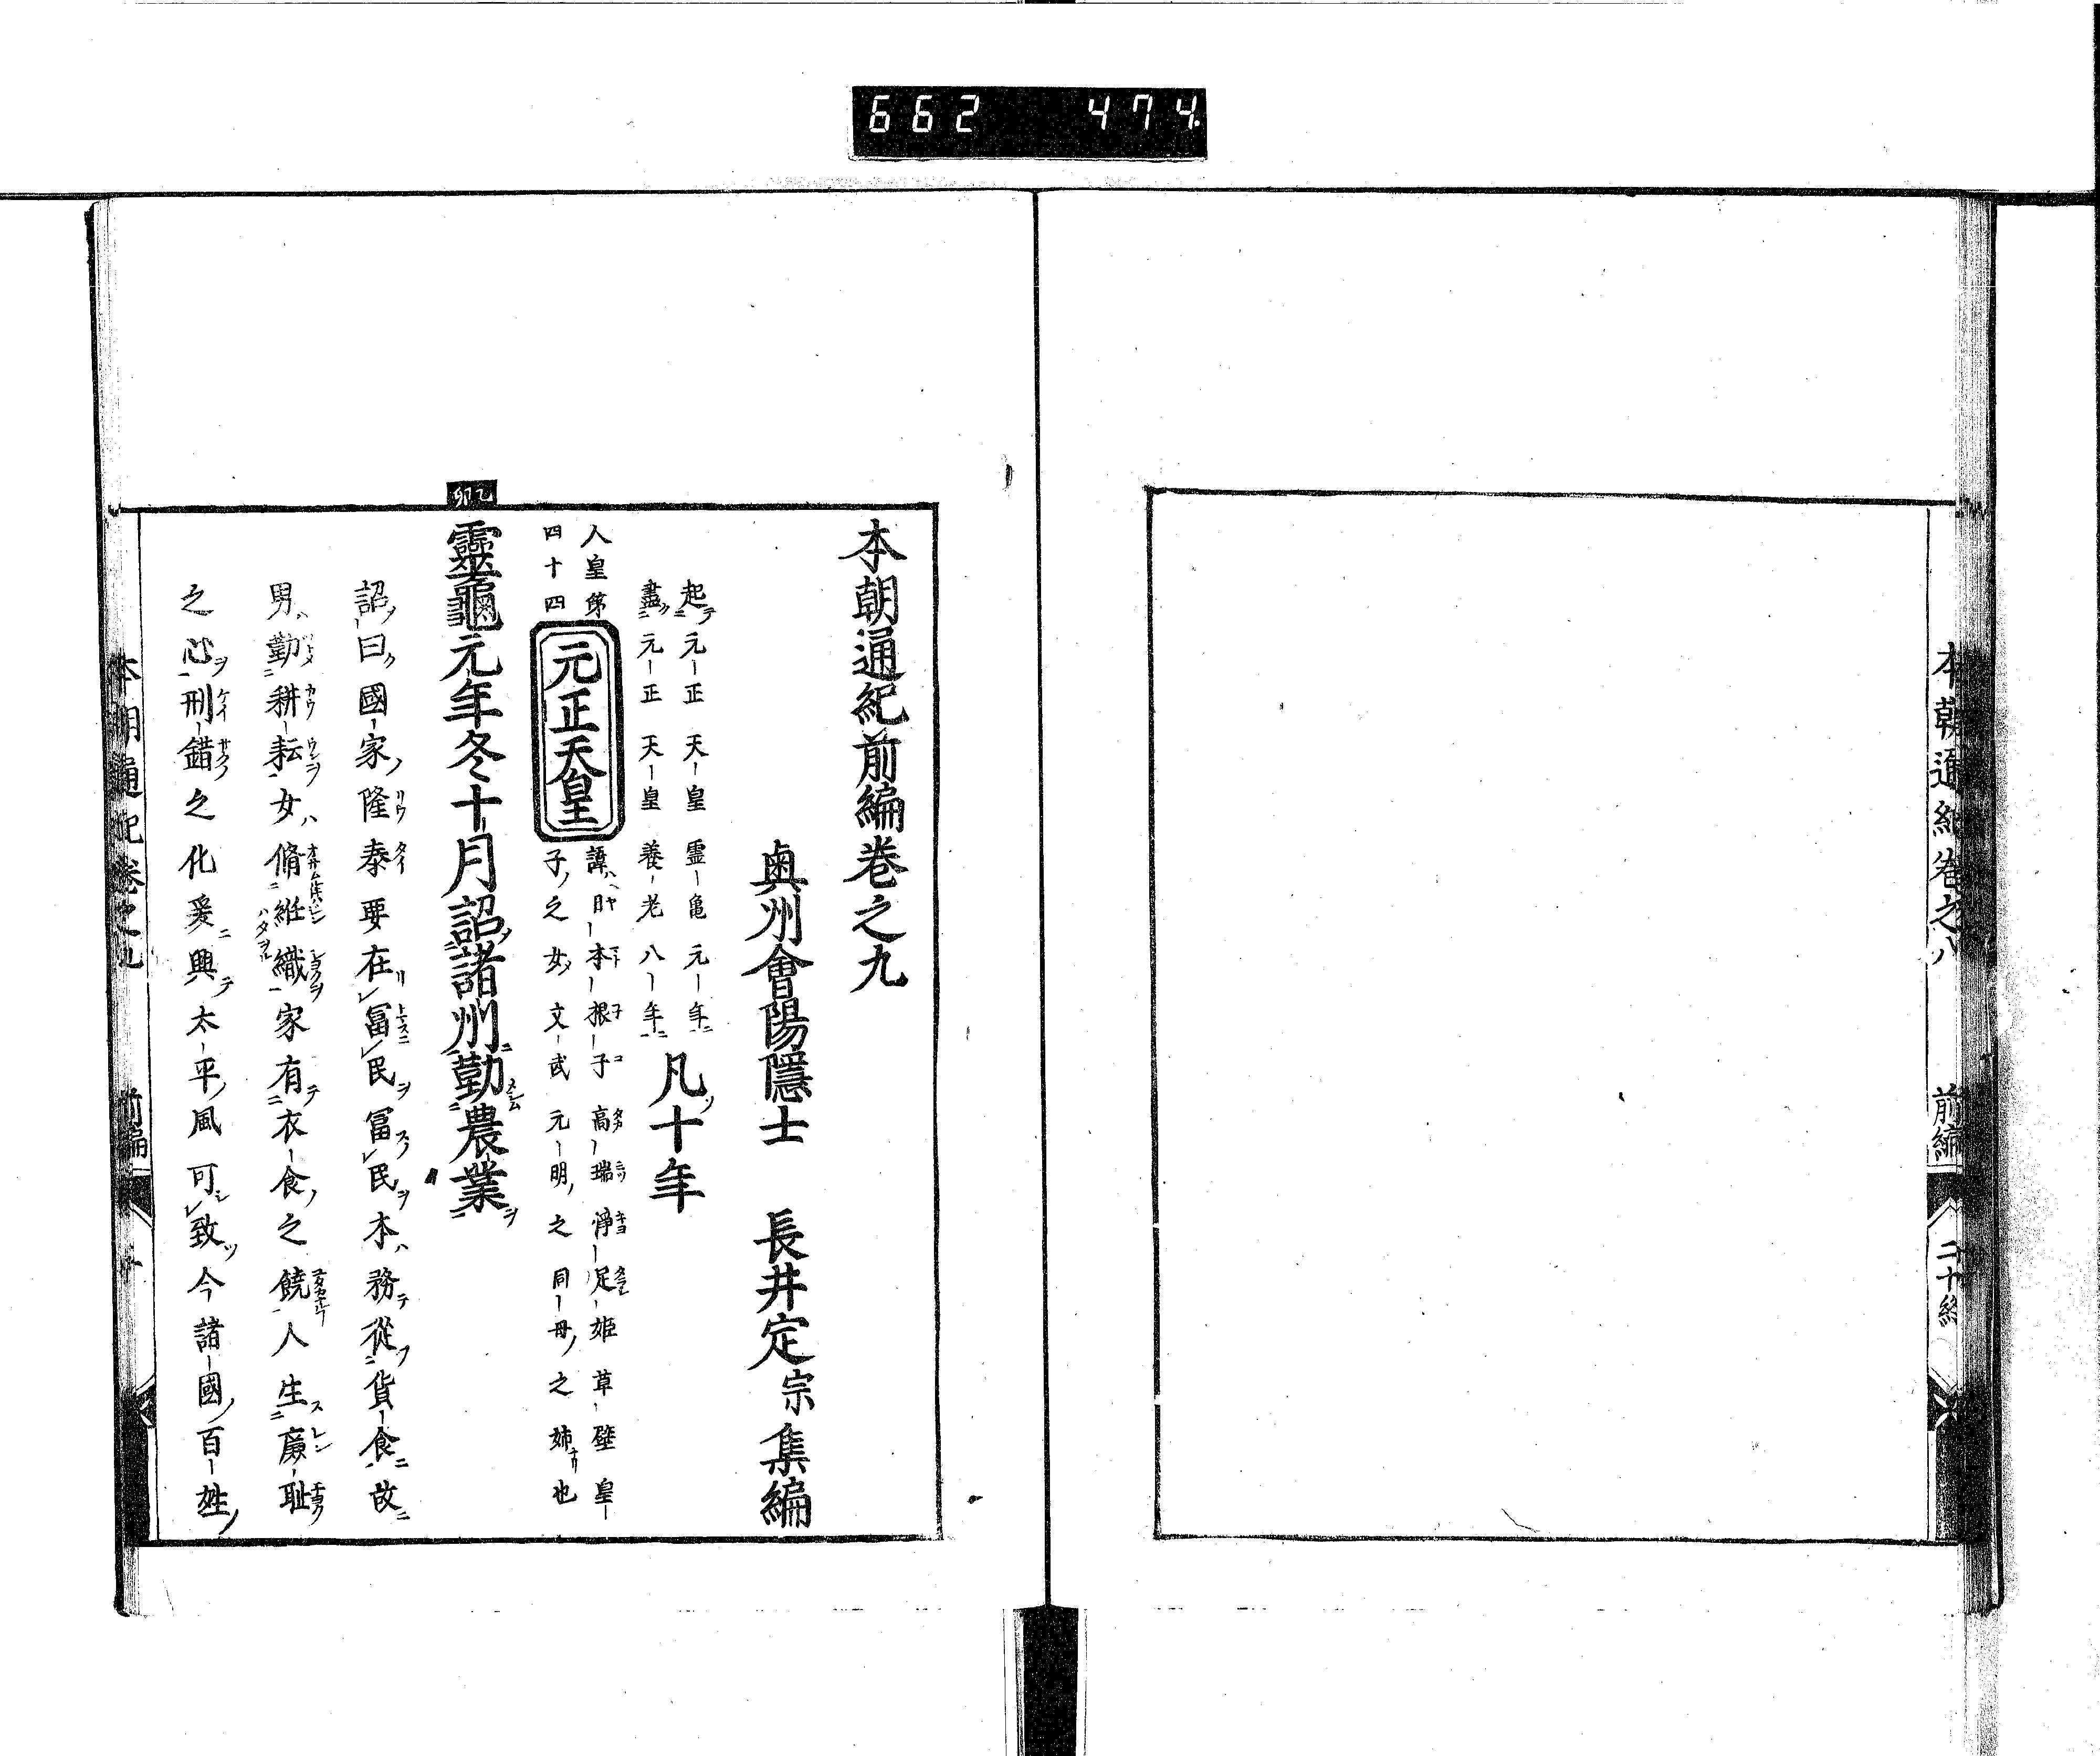 662 474
本朝通紀卷之八 前編 二十終
本朝通紀前編卷之九
奥州會陽隱士 長井定宗集編
起元正天皇靈亀元年
盡元正天皇養老八年
凡十年
人皇第
四十四
元正天皇
諱日本根子高瑞淨足姫草壁皇
子之女文武元明之同母之姉也
乙卯
靈龜元年冬十月詔諸州勸農業
詔曰國家隆泰要在冨民冨民本務從貨食故
男勤耕耘女脩絍織家有衣食之饒人生廉耻
之心刑錯之化爰興太平風可致今諸國百姓
本朝通紀卷之九 前編